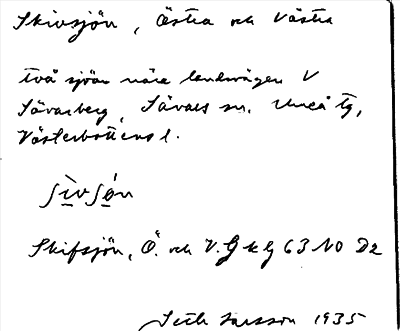 Skivsjön, Östra och Västra
två sjöar nära landsvägen V
Sävarberg, Sävars sn. Umeå tg,
Västerbottens l.
ʃìvʃǿn
Skifsjön, Ö. och V. G k G 63 NO D2
Seth Larsson 1935